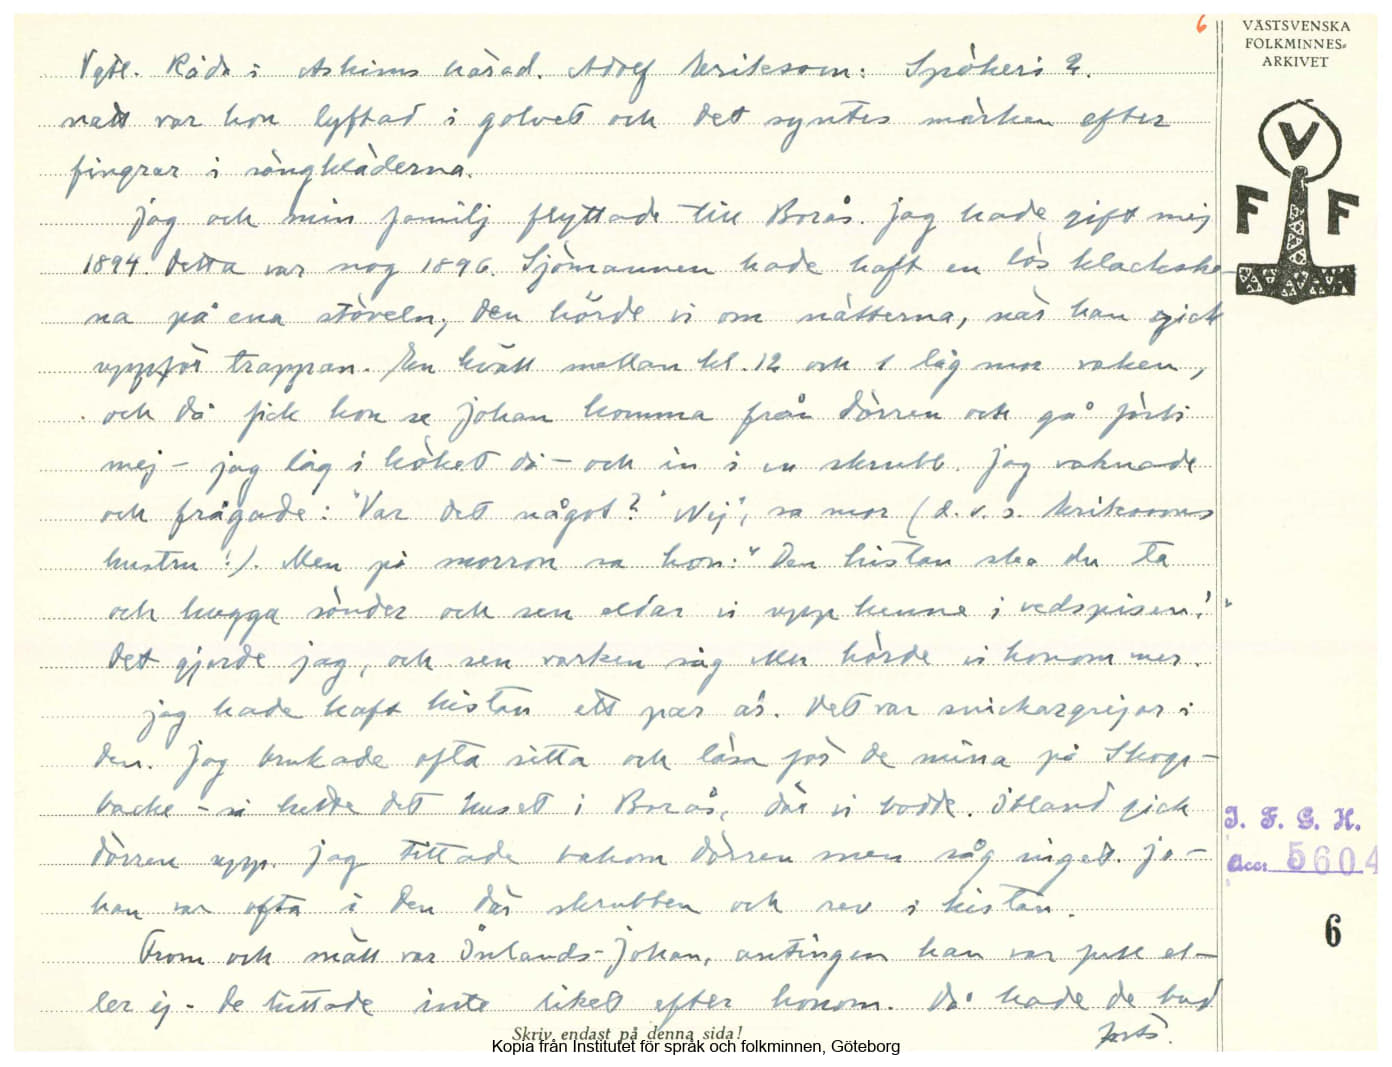 6
VÄSTSVENSKA
FOLKMINNES-
ARKIVET
V
F F
Vgtl. Råda i Askims härad. Adolf Erikson: Spökeri 2.
natt var hon lyftad i golvet och det syntes märken efter
fingrar i sängkläderna.
Jag och min familj flyttade till Borås. Jag hade gift mej
1894. Detta var nog 1896. Sjömannen hade haft en lös klackske-
na på ena stöveln, den hörde vi om nätterna, när han gick
uppför trappan. En kväll mellan kl. 12 och 1 låg mor vaken,
och då fick hon se Johan komma från dörren och gå förbi
mej – jag låg i köket då – och in i en skrubb. Jag vaknade
och frågade: "Var det något?" "Nej", sa mor (d.v.s. Eriksons
hustru!). Men på morron sa hon: "Den kistan ska du ta
och hugga sönder och sen eldar vi upp henne i vedspisen!"
Det gjorde jag, och sen varken såg eller hörde vi honom mer.
Jag hade haft kistan ett par år. Det var snickargrejor i
den. Jag brukade ofta sitta och läsa för de mina på Skogs-
backe – så hette det huset i Borås, där vi bodde. Ibland gick
dörren upp. Jag tittade bakom dörren men såg inget. Jo-
han var ofta i den där skrubben och rev i kistan.
From och snäll var Johan, antingen han var full el-
ler ej – de tittade inte liket efter honom. Då hade de bud
forts.
Skriv endast på denna sida!
Kopia från Institutet för språk och folkminnen, Göteborg
I. F. G. H.
Acc. 5604
6